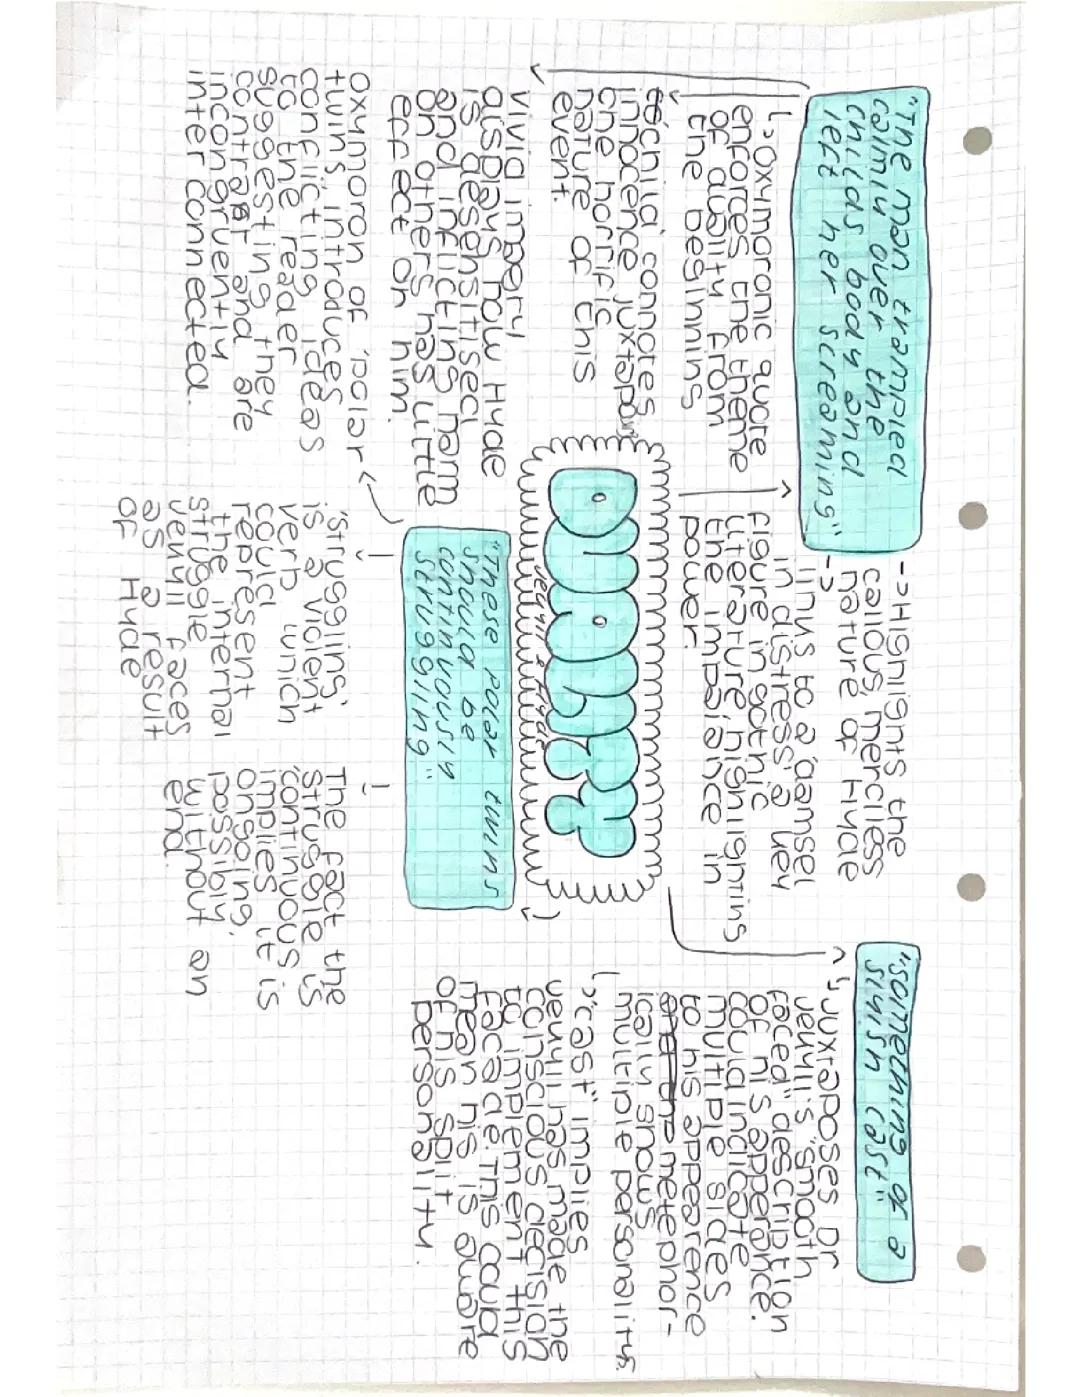 "The man trampled
calmly over the
child's body and
left her screaming"
-> Highlights the
callous, merciless
nature of Hyde
->
links to a 'damsel
in distress' a key
figure in gothic
literature highlighting
the impalance in
power.
↳ Oxymoronic quote
enforces the theme
of duality from
the beginning
'child' connotes
innocence juxtapos
the horrific
nature of this
event.
Vivid imgery
displays how Hyde
is desensitised
and inflicting harm
on others has little
effect on him.
DUALITY
Jekyll & Hyde
"something of a
slyish cast"
↳ Juxtaposes Dr
Jekyll's "smooth
faced" description
of his apperence.
Could indicate
multiple sides
to his appearence
metephor-
ically shows
multiple personalitys.
↳ "cast" implies
Jekyll has made the
conscious decision
to implement this
facade. This could
mean his is aware
of his split
personality.
"These polar twins
should be
continuously
struggling"
oxymoron of 'polar
twins' introduces
conflicting ideas
to the reader
suggesting they
contrast and are
incongruently
inter connected.
'Struggling'
is a violent
verb which
could
represent
the internal
struggle
Jekyll faces
as a result
of Hyde
The fact the
struggle is
'continuous'
implies it is
ongoing,
possibly
without an
end.